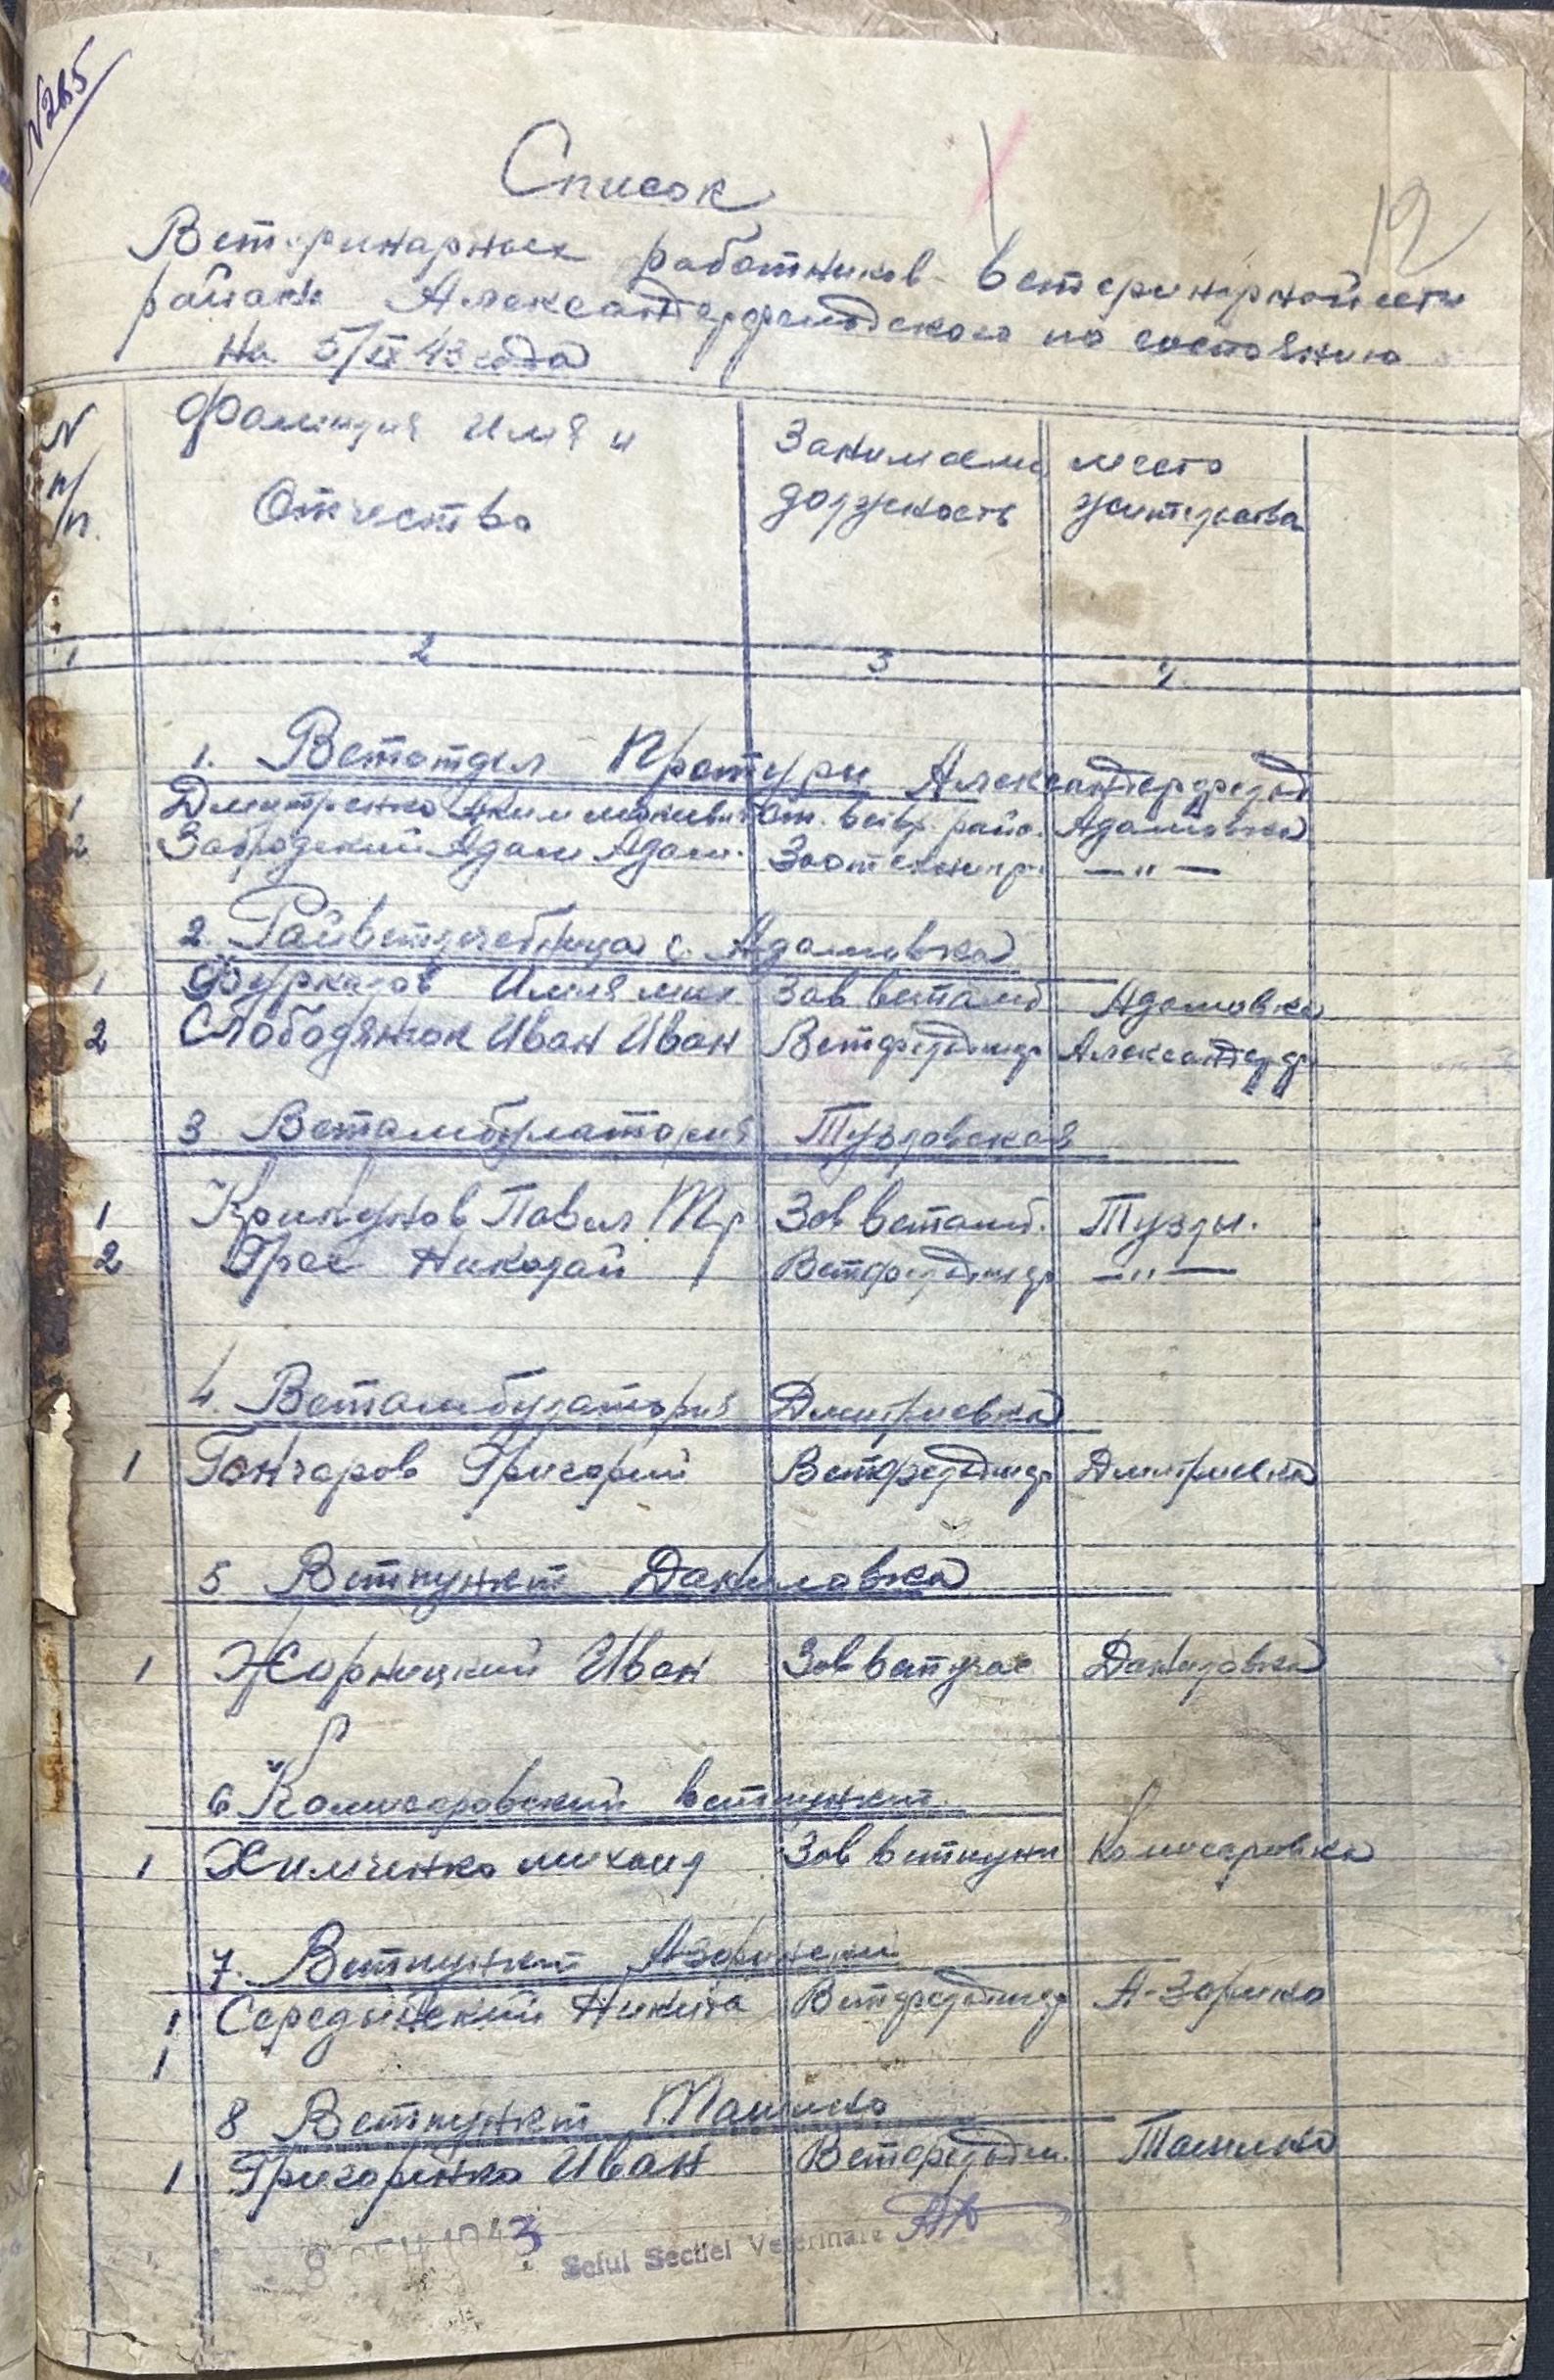 N 265
12
Список
Ветеринарных работников ветеринарной сети
района Александерфельдского по состоянию
на 5/IX 43 года
N п/п. Фамилия Имя и Отчество Занимаем. должность место жительства
1 2 3 4
1. Ветотдел Претуры Александерфельд
1 Дмитренко Аким Адамовка
2 Забродский Адам Адам. Зоотехник —"—
2. Райветлечебница с. Адамовка
1 Зав ветамб Адамовка
2 Слободянюк Иван Иван Ветфельдшер Александерф
3 Ветамбулатория Тузловская
1 Крикунов Павел Тр Зав ветамб. Тузлы.
2 Грас Николай Ветфельдшер —"—
4. Ветамбулатория Дмитриевка
1 Гончаров Григорий Ветфельдшер Дмитриевка
5 Ветпункт Даниловка
1 Жарницкий Иван Зав ветучас Даниловка
6 Комисаровский ветпункт.
1 Химченко михаил Зав ветпунк Комисаровка
7. Ветпункт Азорински
1 Середынский Никита Ветфельдшер А-Зорика
1
8 Ветпункт Ташино
1 Григоренко Иван Ветфельдш. Ташино
8 1943
Seful Sectiei Veterinare